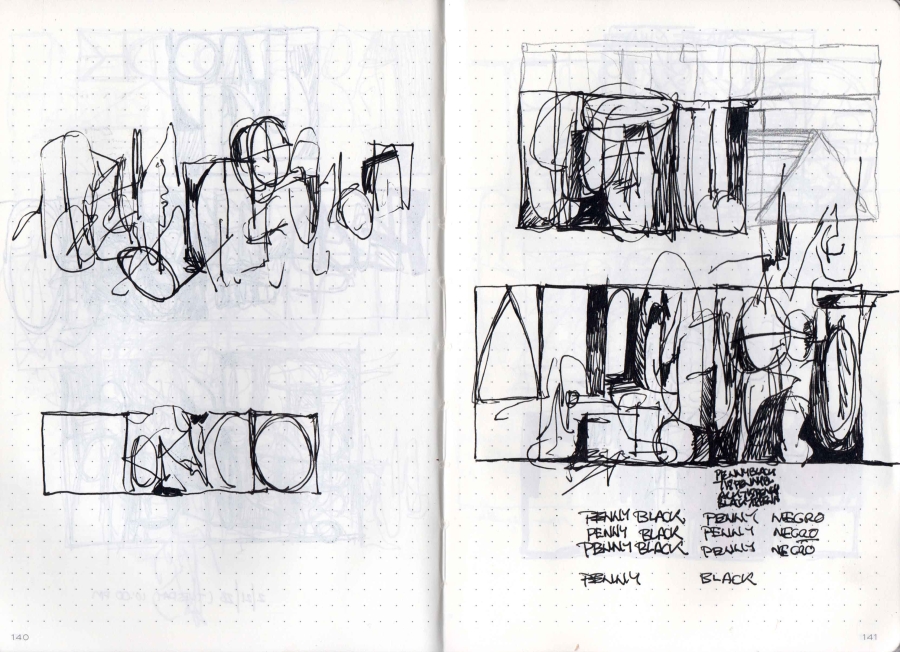 PENNY BLACK
PENNY BLACK PENNY NEGRO
PENNY BLACK PENNY NEGRO
PENNY BLACK PENNY NEGRO
PENNY BLACK
140
141